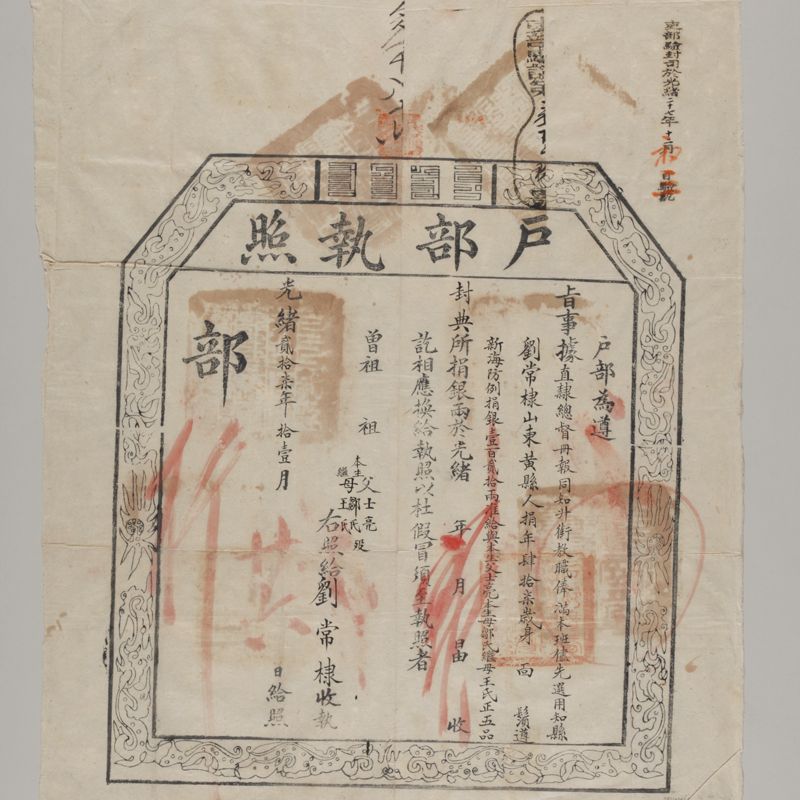 吏部驗封司於光緒二十七年十二月 日註記
戶部執照
戶部為遵
旨事據直隸總督冊報同知升銜教職俸滿本班儘先選用知縣
劉常棣山東黃縣人捐年肆拾柒歲身 面 鬚遵
新海防例捐銀壹百貳拾兩准給與本生父士亮本生母鄒氏繼母王氏正五品
封典所捐銀兩於光緒 年 月 由 收
訖相應換給執照以杜假冒須至執照者
曾祖 祖 本生父士亮 母鄒氏 繼 王氏 歿
右照給劉常棣收執
光緒貳拾柒年拾壹月 日給照
部